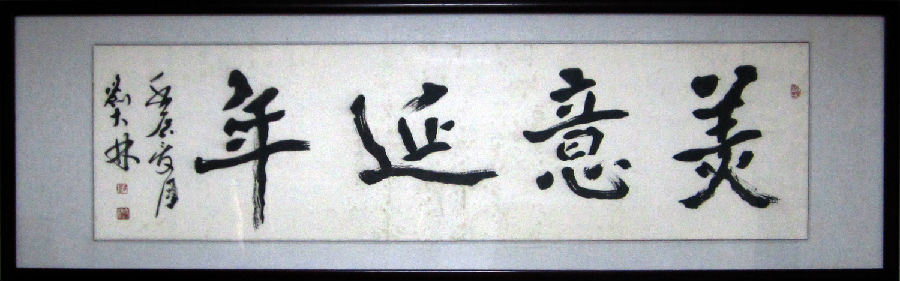 美意延年
壬辰夏月
劉大林